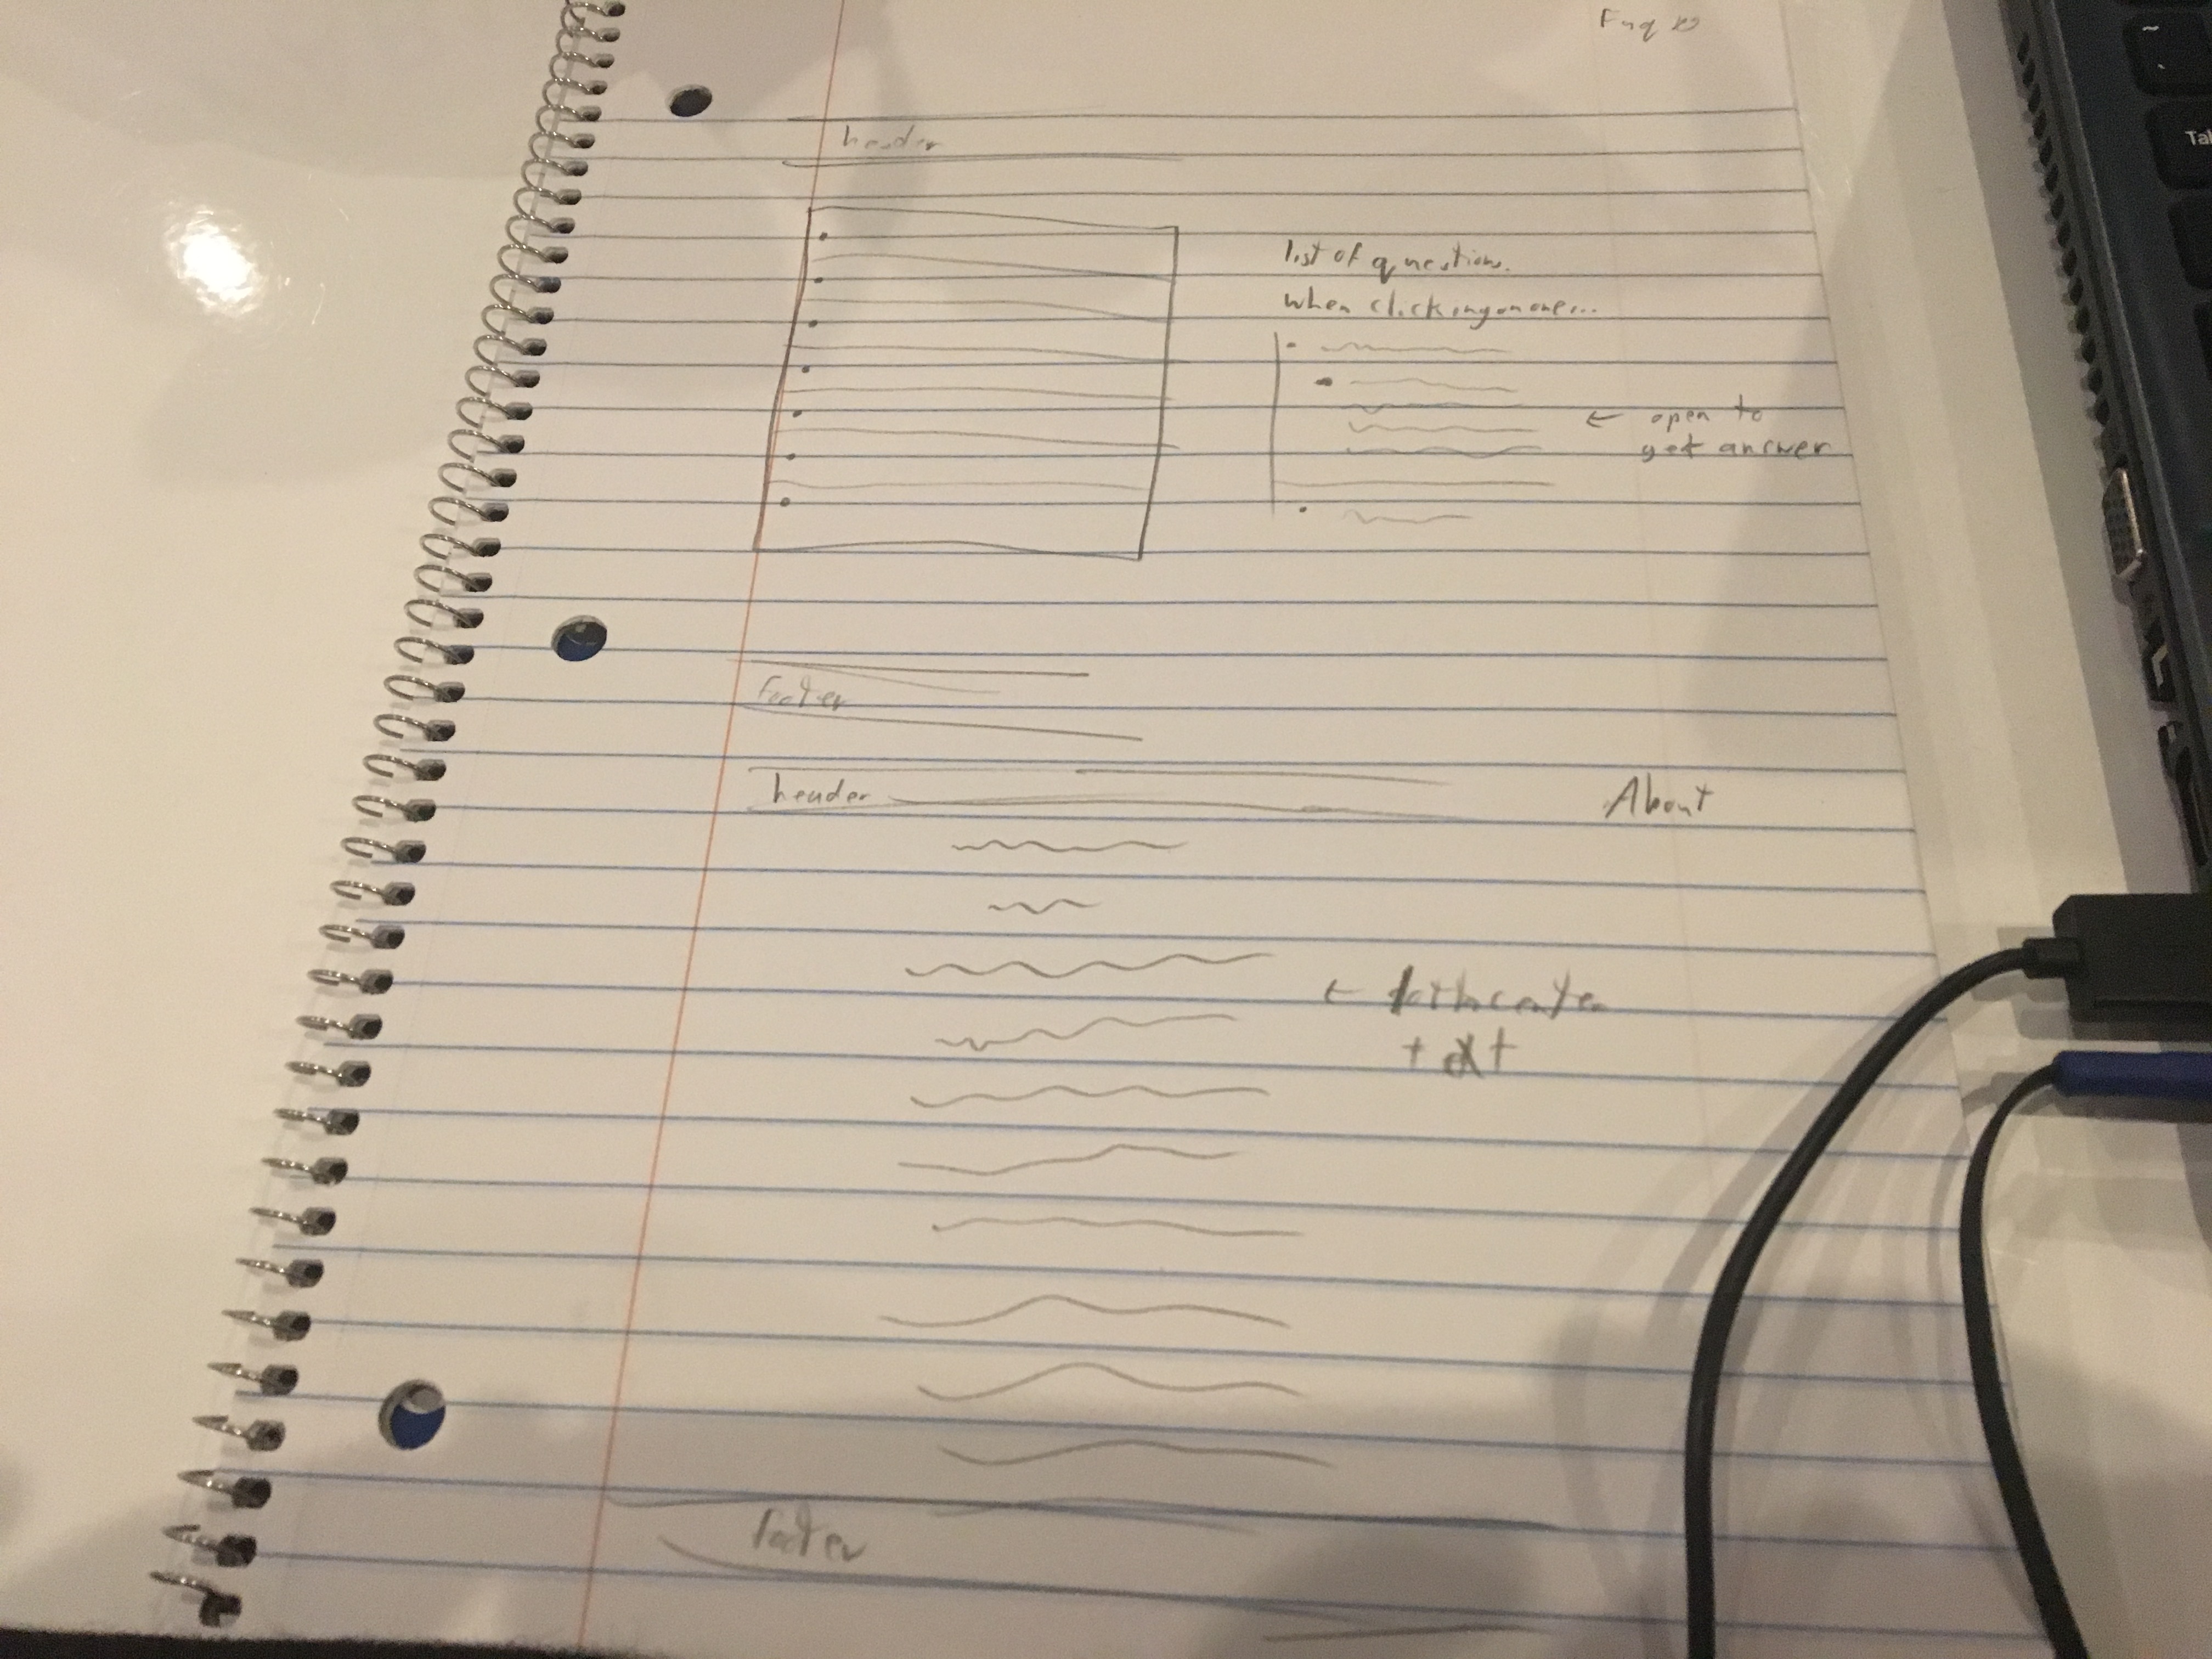 Faq
header
list of questions.
when clicking on one...
← open to
get answer
footer
header
About
←
footer
Tab
~